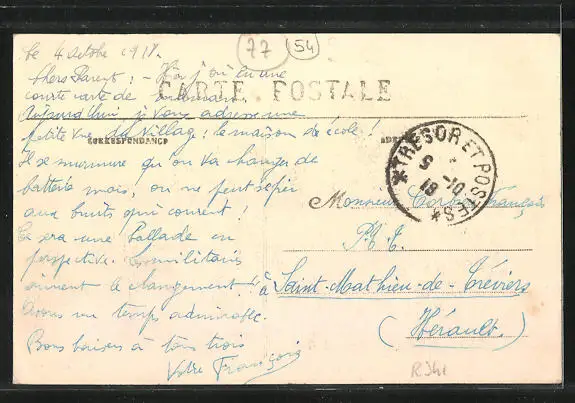 77 54
Le 4 octobre 1918.
Chers Parents : – Hier j'ai eu une
courte carte de
Aujourd'hui, je vous adresse une
petite vue du village : la maison de école !
Il se murmure qu'on va changer de
batterie mais, on ne peut se fier
aux bruits qui courent !
Ce sera une ballade en
perspective. Les militaires
aiment le changement !
Avons un temps admirable.
Bons baisers à tous trois
Votre François
CARTE POSTALE
CORRESPONDANCE
TRESOR ET POSTES
9 -10
18
Monsieur François
P.T.T.
à Saint-Mathieu-de-Tréviers
(Hérault.)